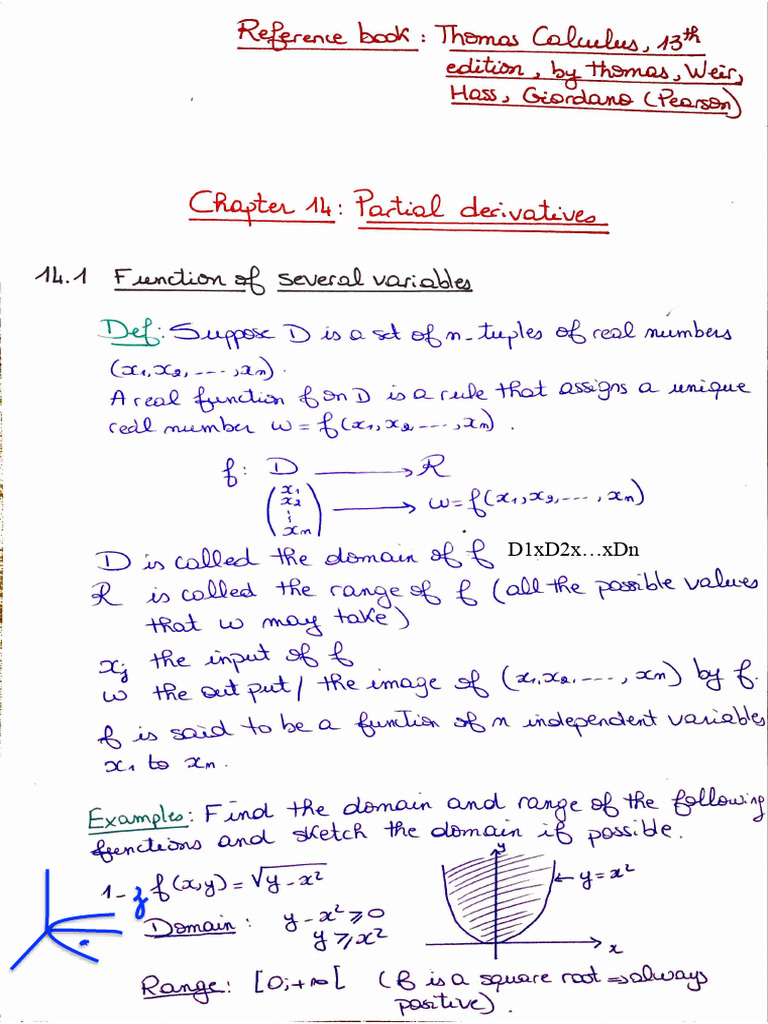 Reference book : Thomas Calculus, 13th
edition, by Thomas, Weir,
Hass, Giordano (Pearson)
Chapter 14 : Partial derivatives
14.1 Function of several variables
Def : Suppose D is a set of n-tuples of real numbers
(x1, x2, ----, xn).
A real function f on D is a rule that assigns a unique
real number w = f(x1, x2, ----, xn).
f : D ⟶ R
(x1 x2 ⋮ xn) ⟶ w = f(x1, x2, ----, xn)
D is called the domain of f D1xD2x…xDn
R is called the range of f (all the possible values
that w may take)
xj the input of f
w the output / the image of (x1, x2, ----, xn) by f.
f is said to be a function of n independent variables
x1 to xn.
Examples : Find the domain and range of the following
functions and sketch the domain if possible.
1- z f(x,y) = √(y - x²)
y
y = x²
Domain : y - x² ⩾ 0
y ⩾ x²
x
Range : [0; +∞[ (f is a square root ⇒ always
positive).